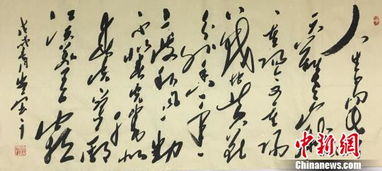 人生易老
天难老岁岁
重阳今又重阳
战地黄花
分外香一年
一度秋风劲
不似春光胜似
春光寥廓
江天万里霜
戊戌
中新网
Chinanews.com